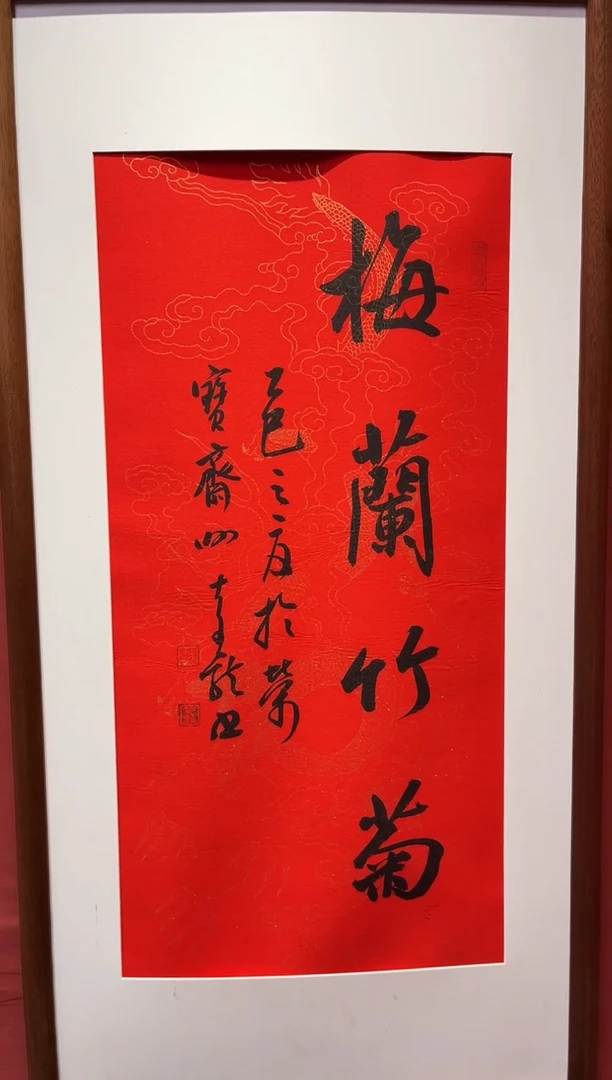 梅蘭竹菊
乙巳之夏於榮
寶齋